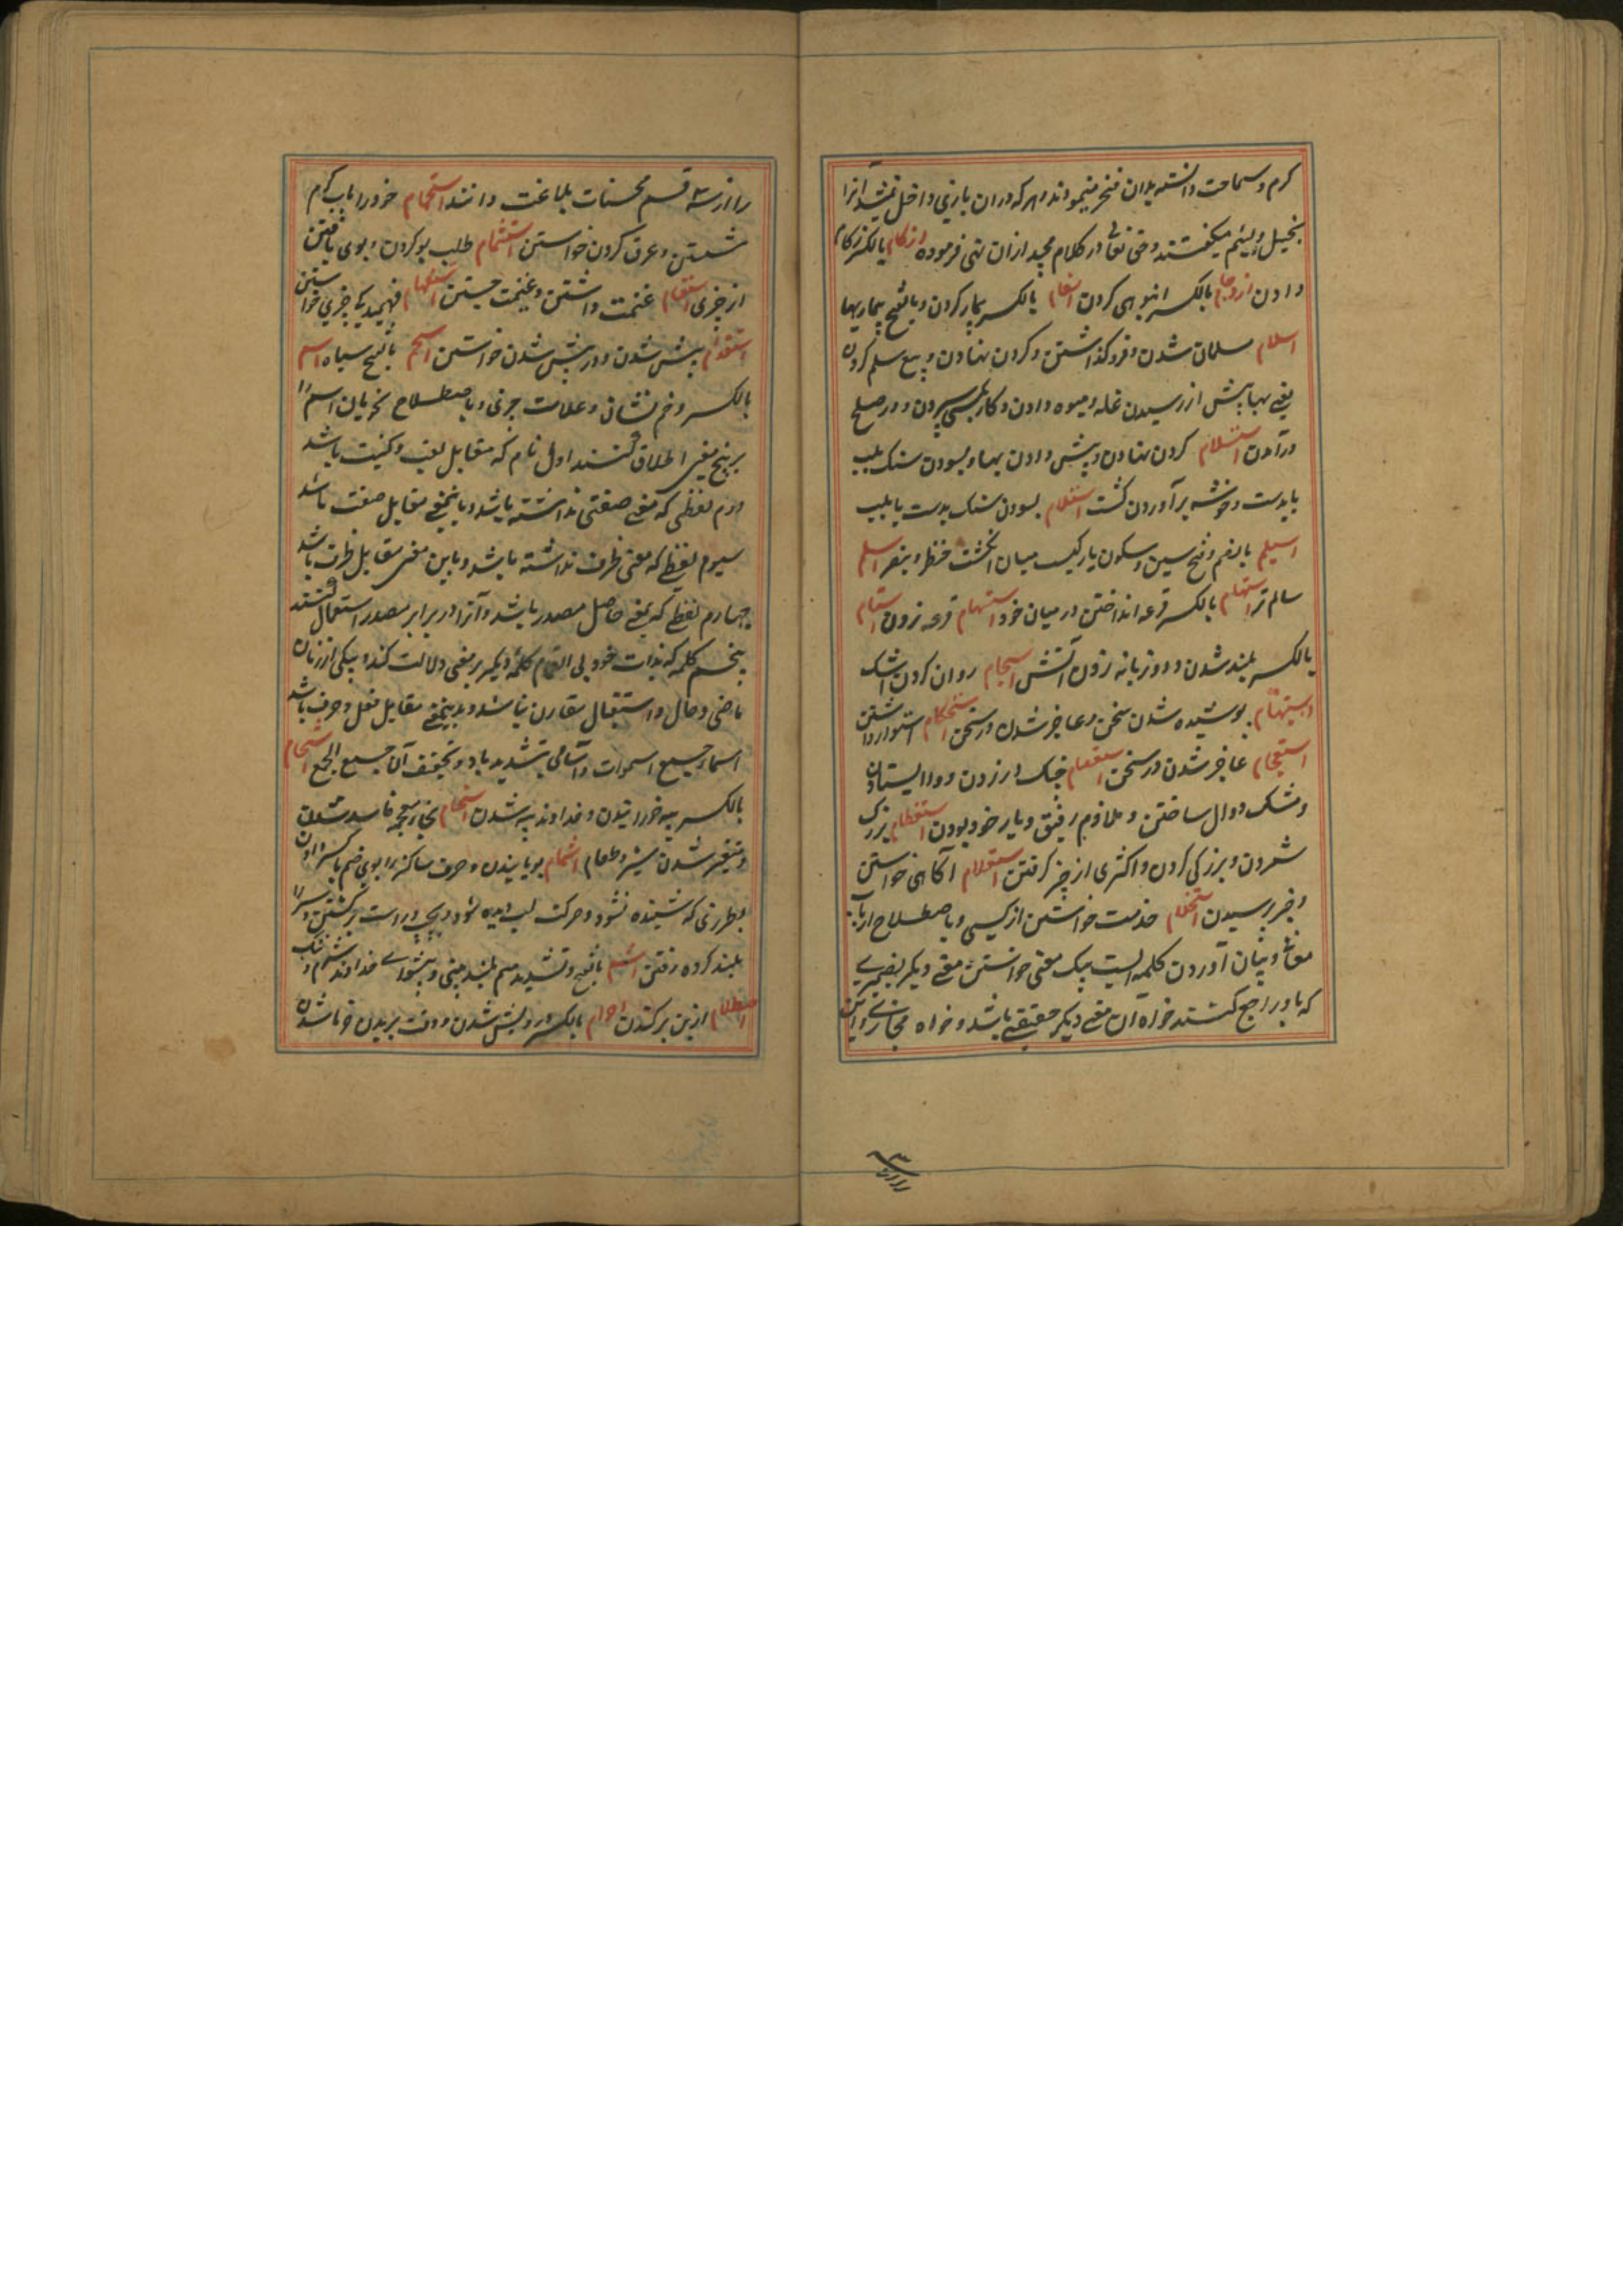 کرم و سماحت دانسته بدان فخر مینمودند و هر که دران بازی داخل نمیشد آنرا
بخیل و لئیم میکفتند و حق تعالی در کلام مجید ازان نهی فرموده ازکام بالکسر زکام
دادن ازدحام بالکسر انبوهی کردن اسقام بالکسر بیمار کردن و بالفتح بیماریها
اسلام مسلمان شدن و فرو کذاشتن و کردن نهادن و بیع سلم کردن
یعنی بها پیش از رسیدن غله و میوه دادن و کار بکسی سپردن و در صلح
درآمدن استسلام کردن نهادن و پیش دادن بها و بسودن سنک بلب
یا بدست و خوشه برآوردن کشت استلام بسودن سنک بدست یا بلب
اسیلم بالضم و فتح سین و سکون یا رکیست میان انکشت خنصر و بنصر اسلم
سالم تر استهام بالکسر قرعه انداختن در میان خود استهام قرعه زدن
بالکسر بلند شدن و دو زبانه زدن آتش اسجام روان کردن اشک
استبهام پوشیده شدن سخن و عاجز شدن در سخن استحکام استوار داشتن
استعجام عاجز شدن در سخن استعصام چنک در زدن و وا ایستادن
و مشک دوال ساختن و ملازم رفیق و یار خود بودن استعظام بزرک
شمردن و بزرکی کردن و اکثری از چیز کرفتن استعلام آکاهی خواستن
و خبر پرسیدن استخدام خدمت خواستن از کسی و باصطلاح ارباب
معانی و بیان آوردن کلمه ایست بیک معنی خواستن معنی دیکر بضمیری
که باو راجع کنند خواه آن معنی دیکر حقیقی باشد و خواه مجازی و این
را از سه قسم محسنات بلاغت دانند استحمام خود را باب کرم
شستن و عرق کردن خواستن استشمام طلب بو کردن و بوی یافتن
از چیزی استغنام غنیمت داشتن و غنیمت جستن استفهام فهمیدکی چیزی خواستن
استقدام پیش شدن و در پیش شدن خواستن اسحم بالفتح سیاه اسم
بالکسر و ضم نشان و علامت چیزی و باصطلاح نحویان اسم را
بر پنج معنی اطلاق کنند اول نام که مقابل لقب و کنیت باشد
دوم لفظی که معنی صفتی نداشته باشد و باینمعنی مقابل صفت باشد
سیوم لفظی که معنی ظرف نداشته باشد و باین معنی مقابل ظرف باشد
چهارم لفظی که بمعنی حاصل مصدر باشد و آنرا در برابر مصدر استعمال کنند
پنجم کلمه که بذات خود بی انضمام کلمه دیکر بر معنی دلالت کند و بیکی از زمان
ماضی و حال و استقبال مقارن نباشد و بدینمعنی مقابل فعل و حرف باشد
اسما جمیع اسموات و اسامی بتشدید یا و تخفیف آن جمیع الجمع اشحام
بالکسر پیه خورانیدن و خداوند پیه شدن اشخام بخای معجمه فاسد شدن
و متغیر شدن شیر و طعام اشمام بویانیدن و حرف ساکن را بوی ضم یا کسر دادن
بطرزی که شنیده نشود و حرکت لب دیده شود و چپ و راست برکشتن و سر را
بلند کرده رفتن اشم بالفتح و تشدید میم بلند بینی و پیشوای خداوند شرم و ننک
اصطلام از بن برکندن اصرام بالکسر درویش شدن و وقت بریدن خرما شدن